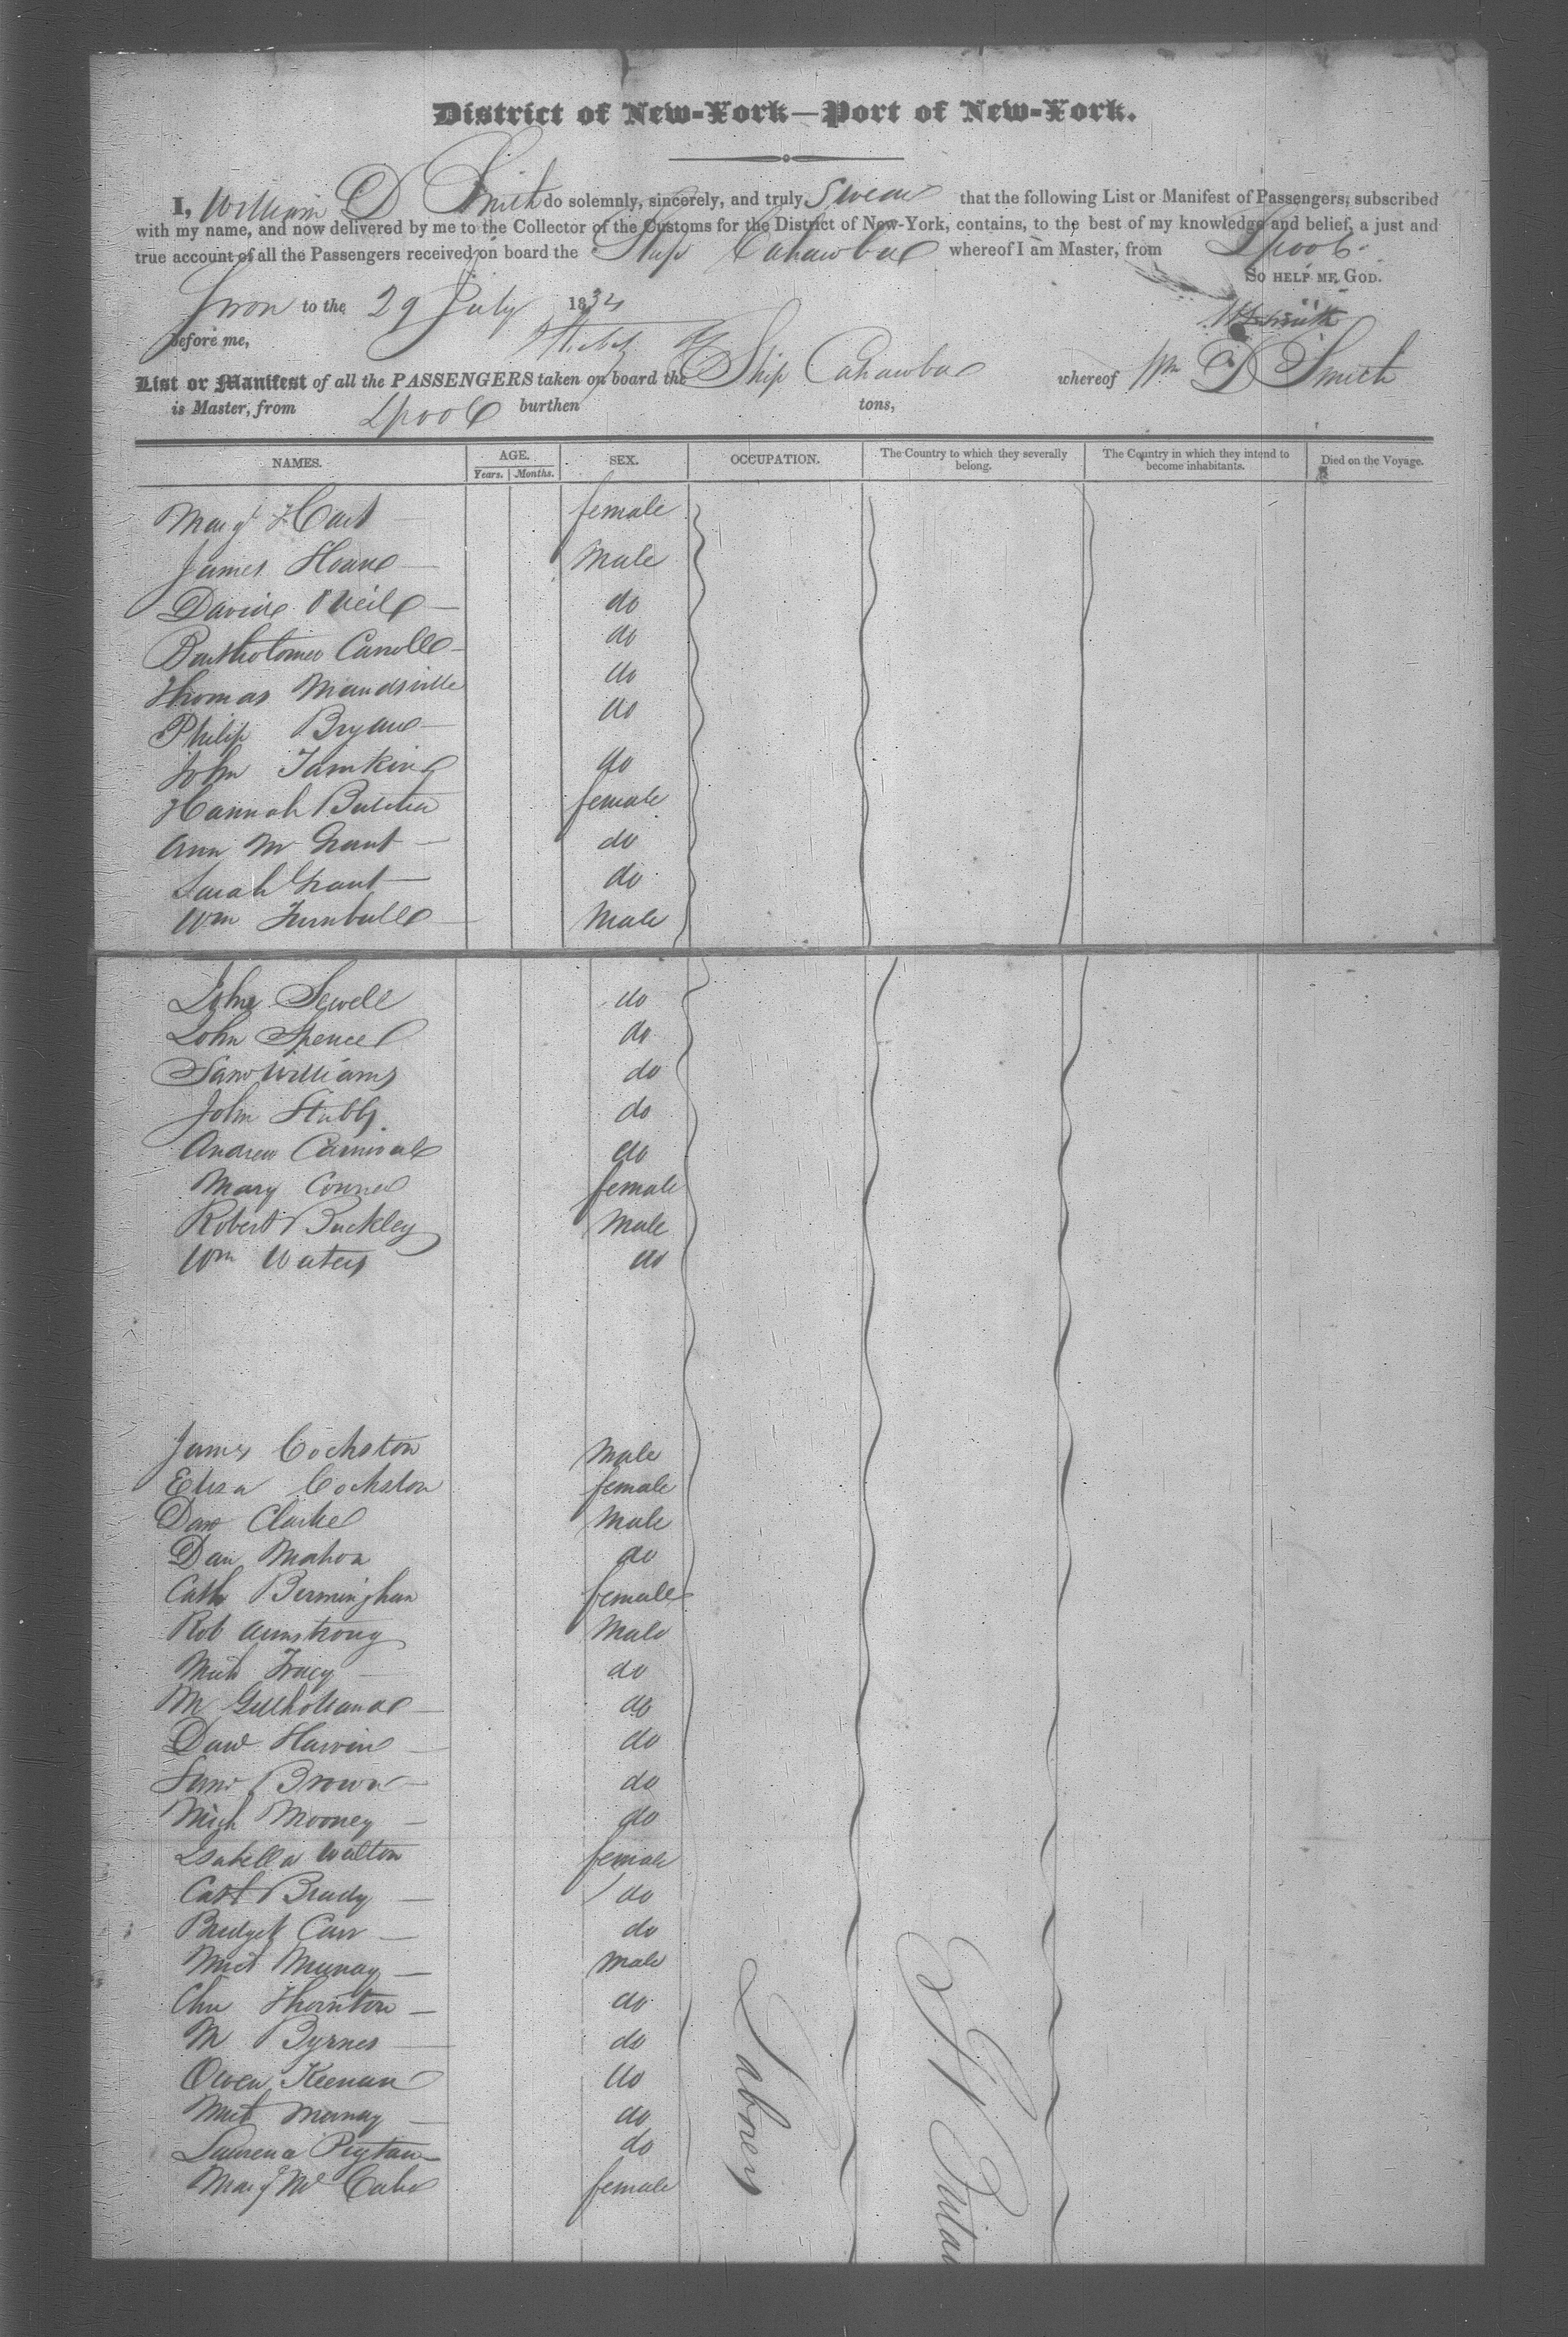 District of New-York—Port of New-York.
I, William D Smith do solemnly, sincerely, and truly Swear that the following List or Manifest of Passengers, subscribed
with my name, and now delivered by me to the Collector of the Customs for the District of New-York, contains, to the best of my knowledge and belief, a just and
true account of all the Passengers received on board the Ship Cahawba whereof I am Master, from Lpool
So help me God.
Sworn to the 29 July 1834
before me,
List or Manifest of all the PASSENGERS taken on board the Ship Cahawba whereof Wm D Smith
is Master, from Lpool burthen tons,
NAMES. AGE. SEX. OCCUPATION. The Country to which they severally belong. The Country in which they intend to become inhabitants. Died on the Voyage.
Years. Months.
Margt Hart female
James Hoare Male
David O'Neil do
Bartholomew Carroll do
Thomas Mandsville do
Philip Bryan do
John Tamkin do
Hannah Butcher female
Ann M Grant do
Sarah Grant do
Wm Turnbull Male
John Sewell do
John Spence do
Sam Williams do
John Stubbs do
Andrew Carnival do
Mary Connel female
Robert Buckley Male
Wm Waters do
James Cockston Male
Eliza Cockston female
Dan Clarke Male
Dan Mahon do
Cath Bermingham female
Rob Armstrong Male
Mich Tracy do
M do
Harvin do
Sam Brown do
Mich Mooney do
Isabella Walton female
Cath Brady do
Bridget Carr do
Mich Murray Male
Chr Thornton do
M Byrnes do
Owen Keenan do
Mich Murray do
Laurence Peyton do
Margt McCabe female
Labores
Gt Britain